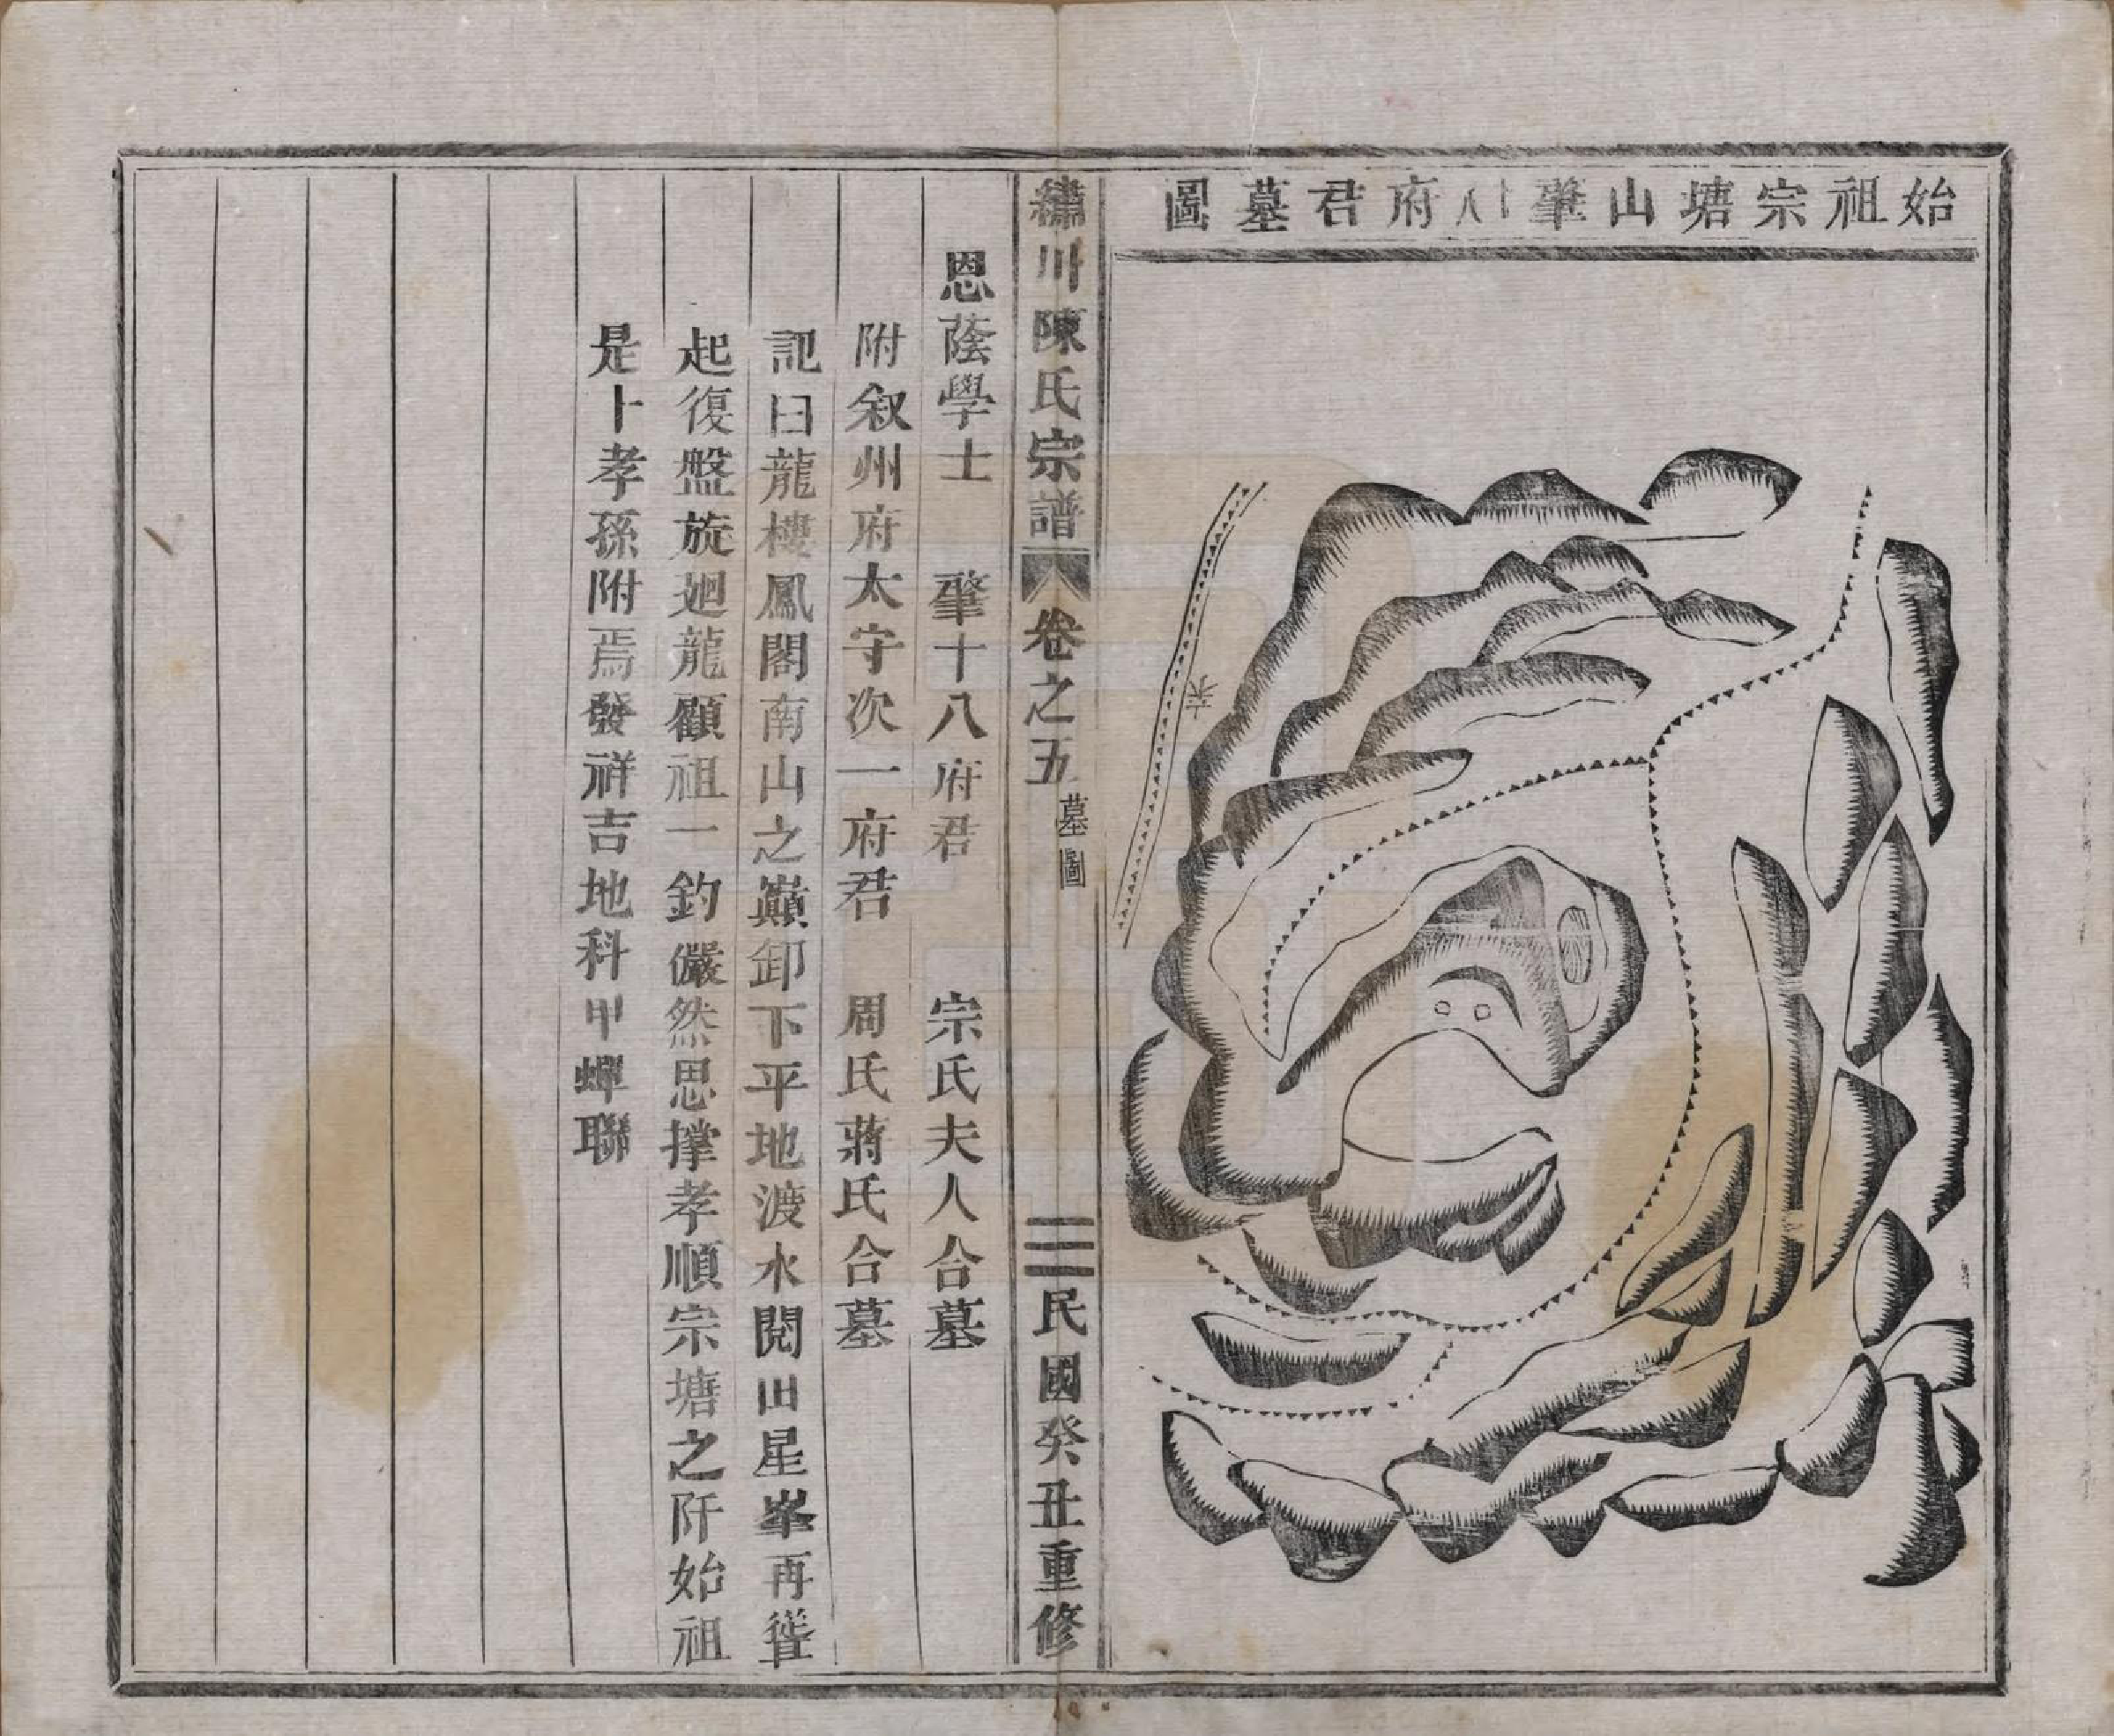 始祖宗塘山肇十八府君墓圖
水
繡川陳氏宗譜 卷之五 墓圖 三 民國癸丑重修
恩蔭學士 肇十八府君 宗氏夫人合墓
附叙州府太守次一府君 周氏蔣氏合墓
記曰龍樓鳳閣南山之巔卸下平地渡水閱田星峯再聳
起復盤旋廻龍顧祖一鈎儼然思撑孝順宗塘之阡始祖
是卜孝孫附焉發祥吉地科甲蟬聯